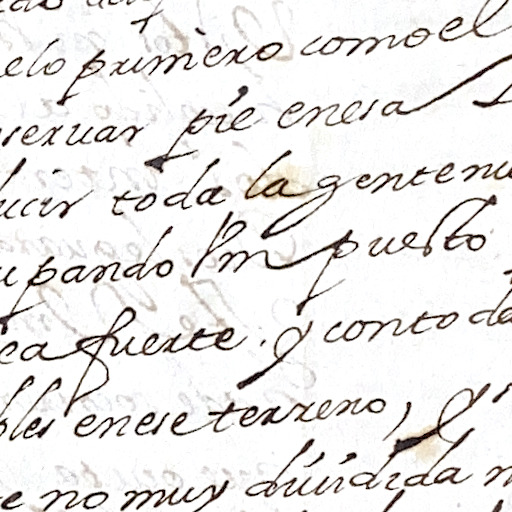 elo primero como el
seruar pie enesa
ucir toda la gente nu
upando Vm puesto
ea fuerte. y con toda
bles enese terreno, y
e no muy diuidida n